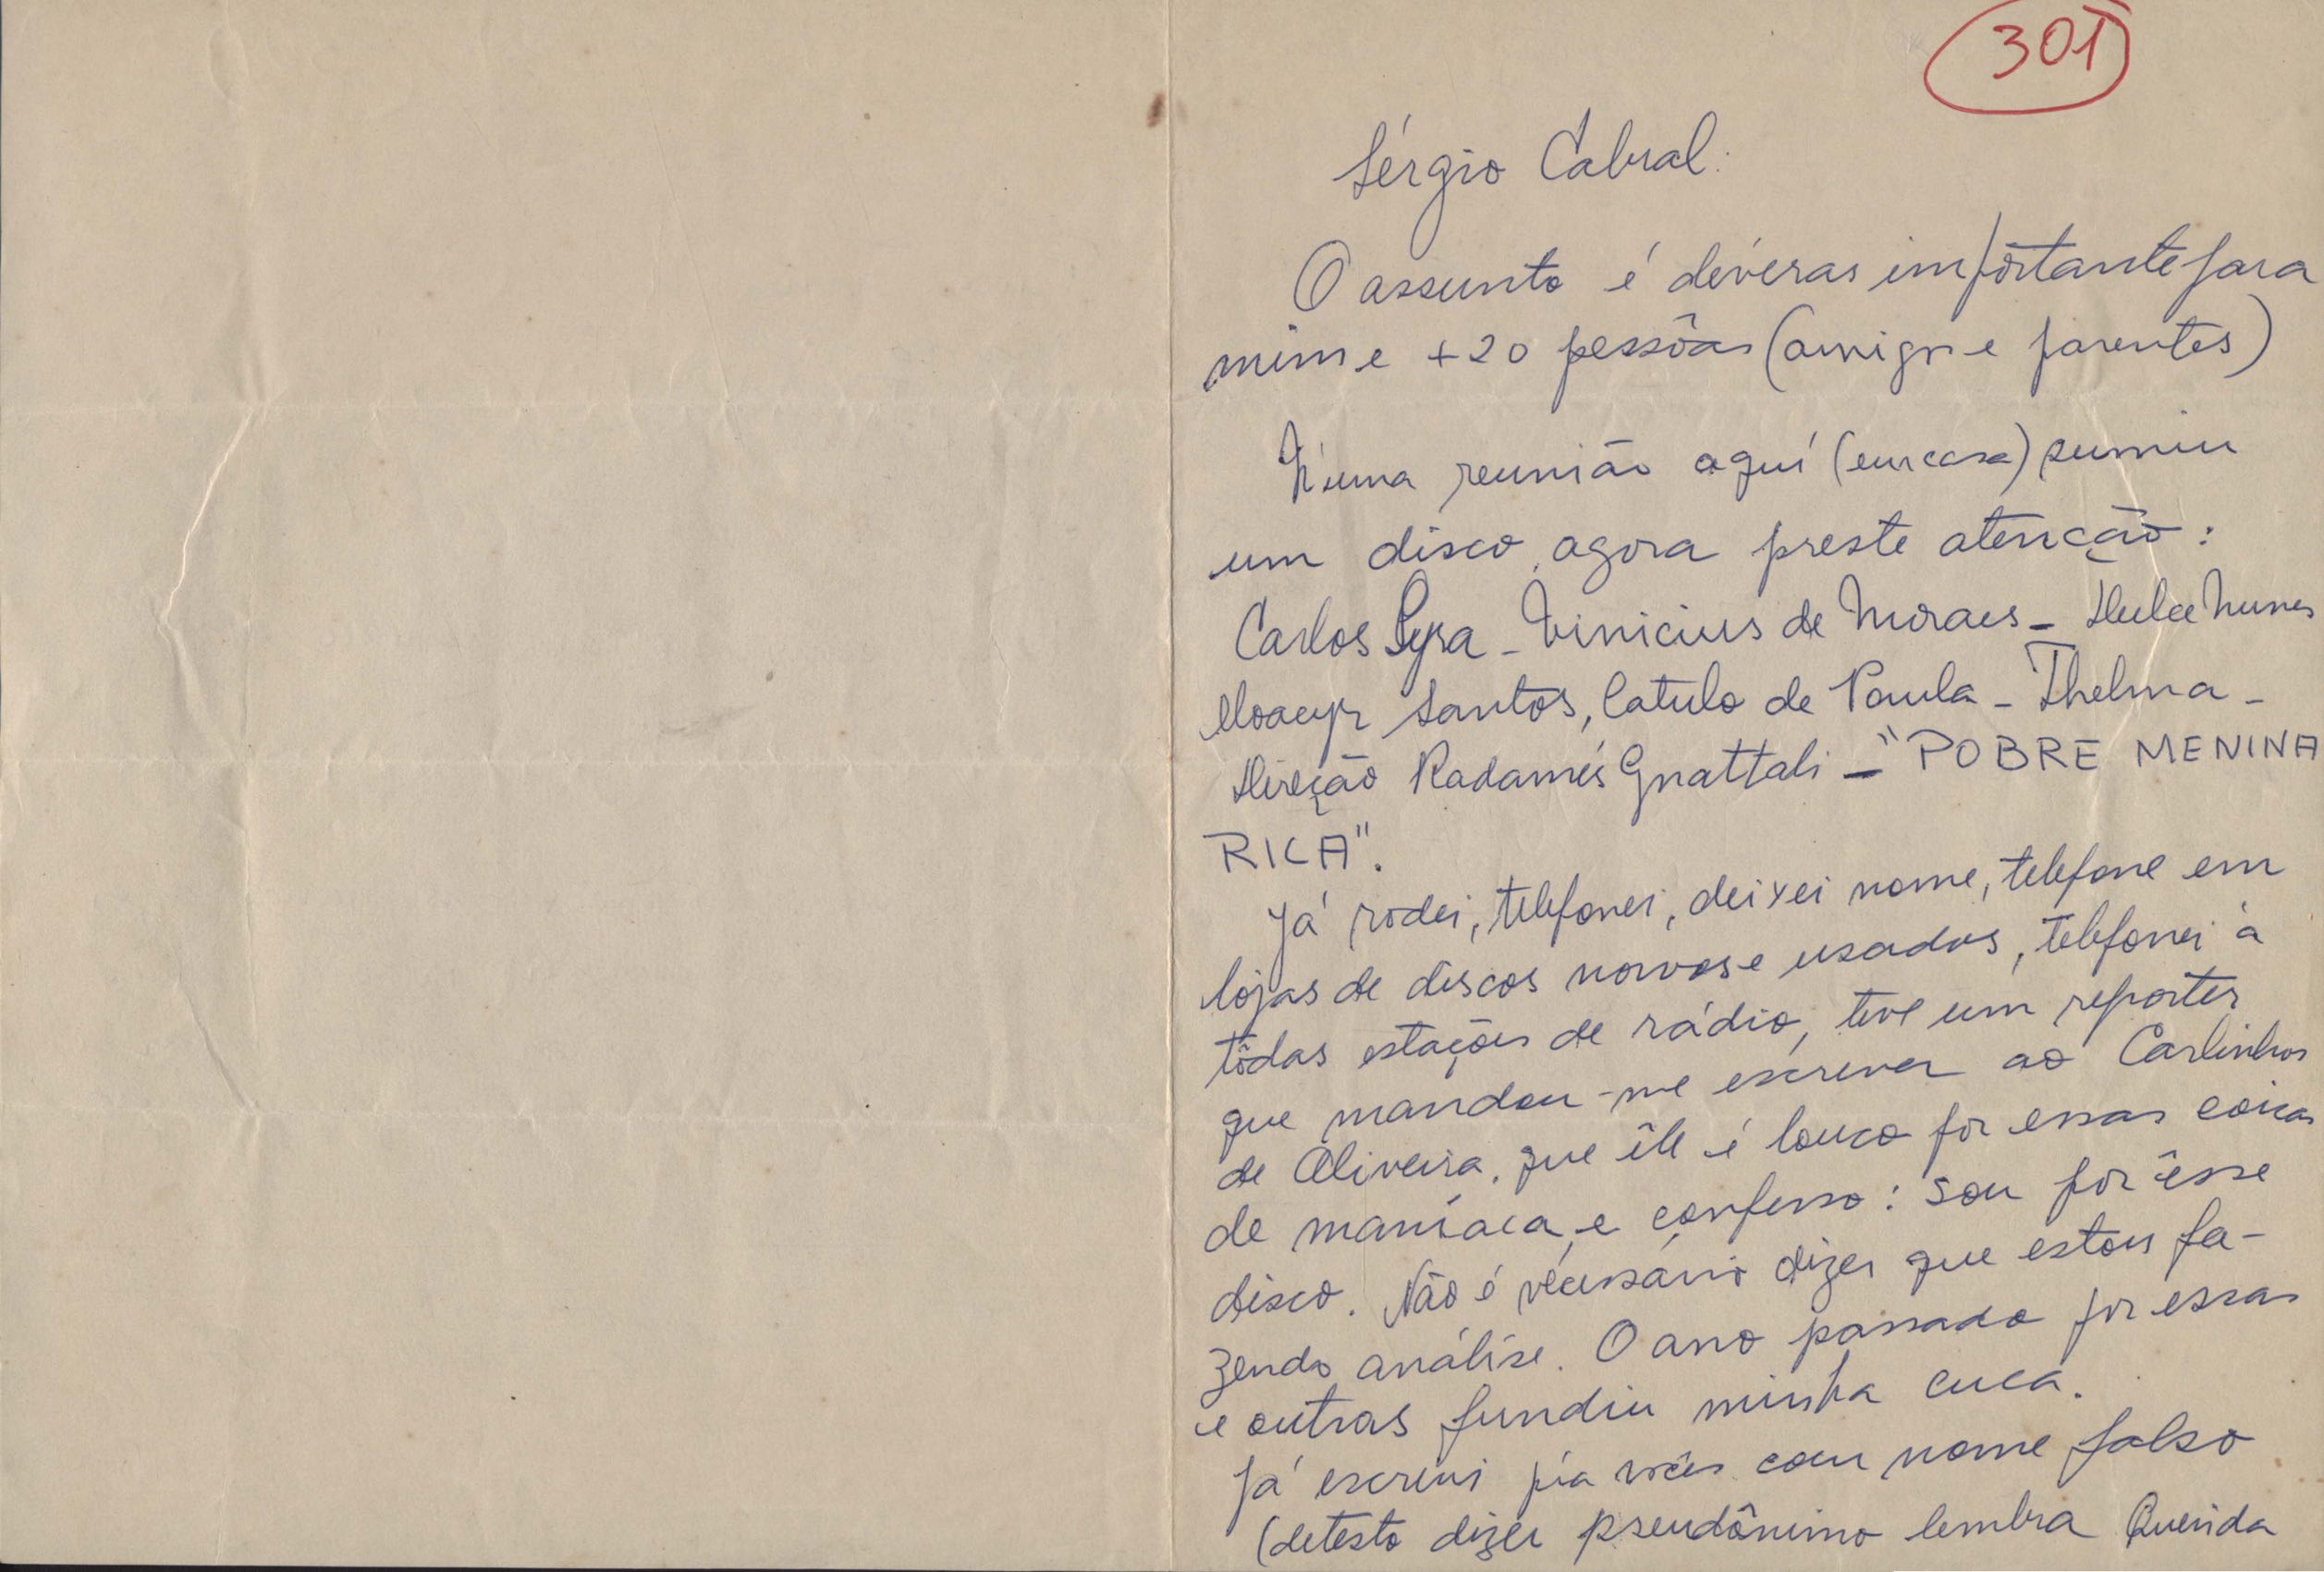 301
Sérgio Cabral.
O assunto é déveras importante para
mim e +20 pessôas (amigos e parentes)
N'uma reunião aquí (em casa) sumiu
um disco, agora preste atenção:
Carlos Lyra - Vinicius de Moraes - Dulce Nunes
Moacyr Santos, Catulo de Paula - Thelma -
Direção Radamés Gnattali - "POBRE MENINA
RICA".
Já rodei, telefonei, deixei nome, telefone em
lojas de discos novos e usados, telefonei à
tôdas estações de rádio, teve um reporter
que mandou-me escrever ao Carlinhos
de Oliveira, que êle é louco por essas coisas
de maníaca, e confesso: sou por êsse
disco. Não é necessário dizer que estou fa-
zendo análise. O ano passado por essas
e outras fundiu minha cuca.
Já escrevi p'ra vocês com nome falso
(detesto dizer pseudônimo lembra Querida